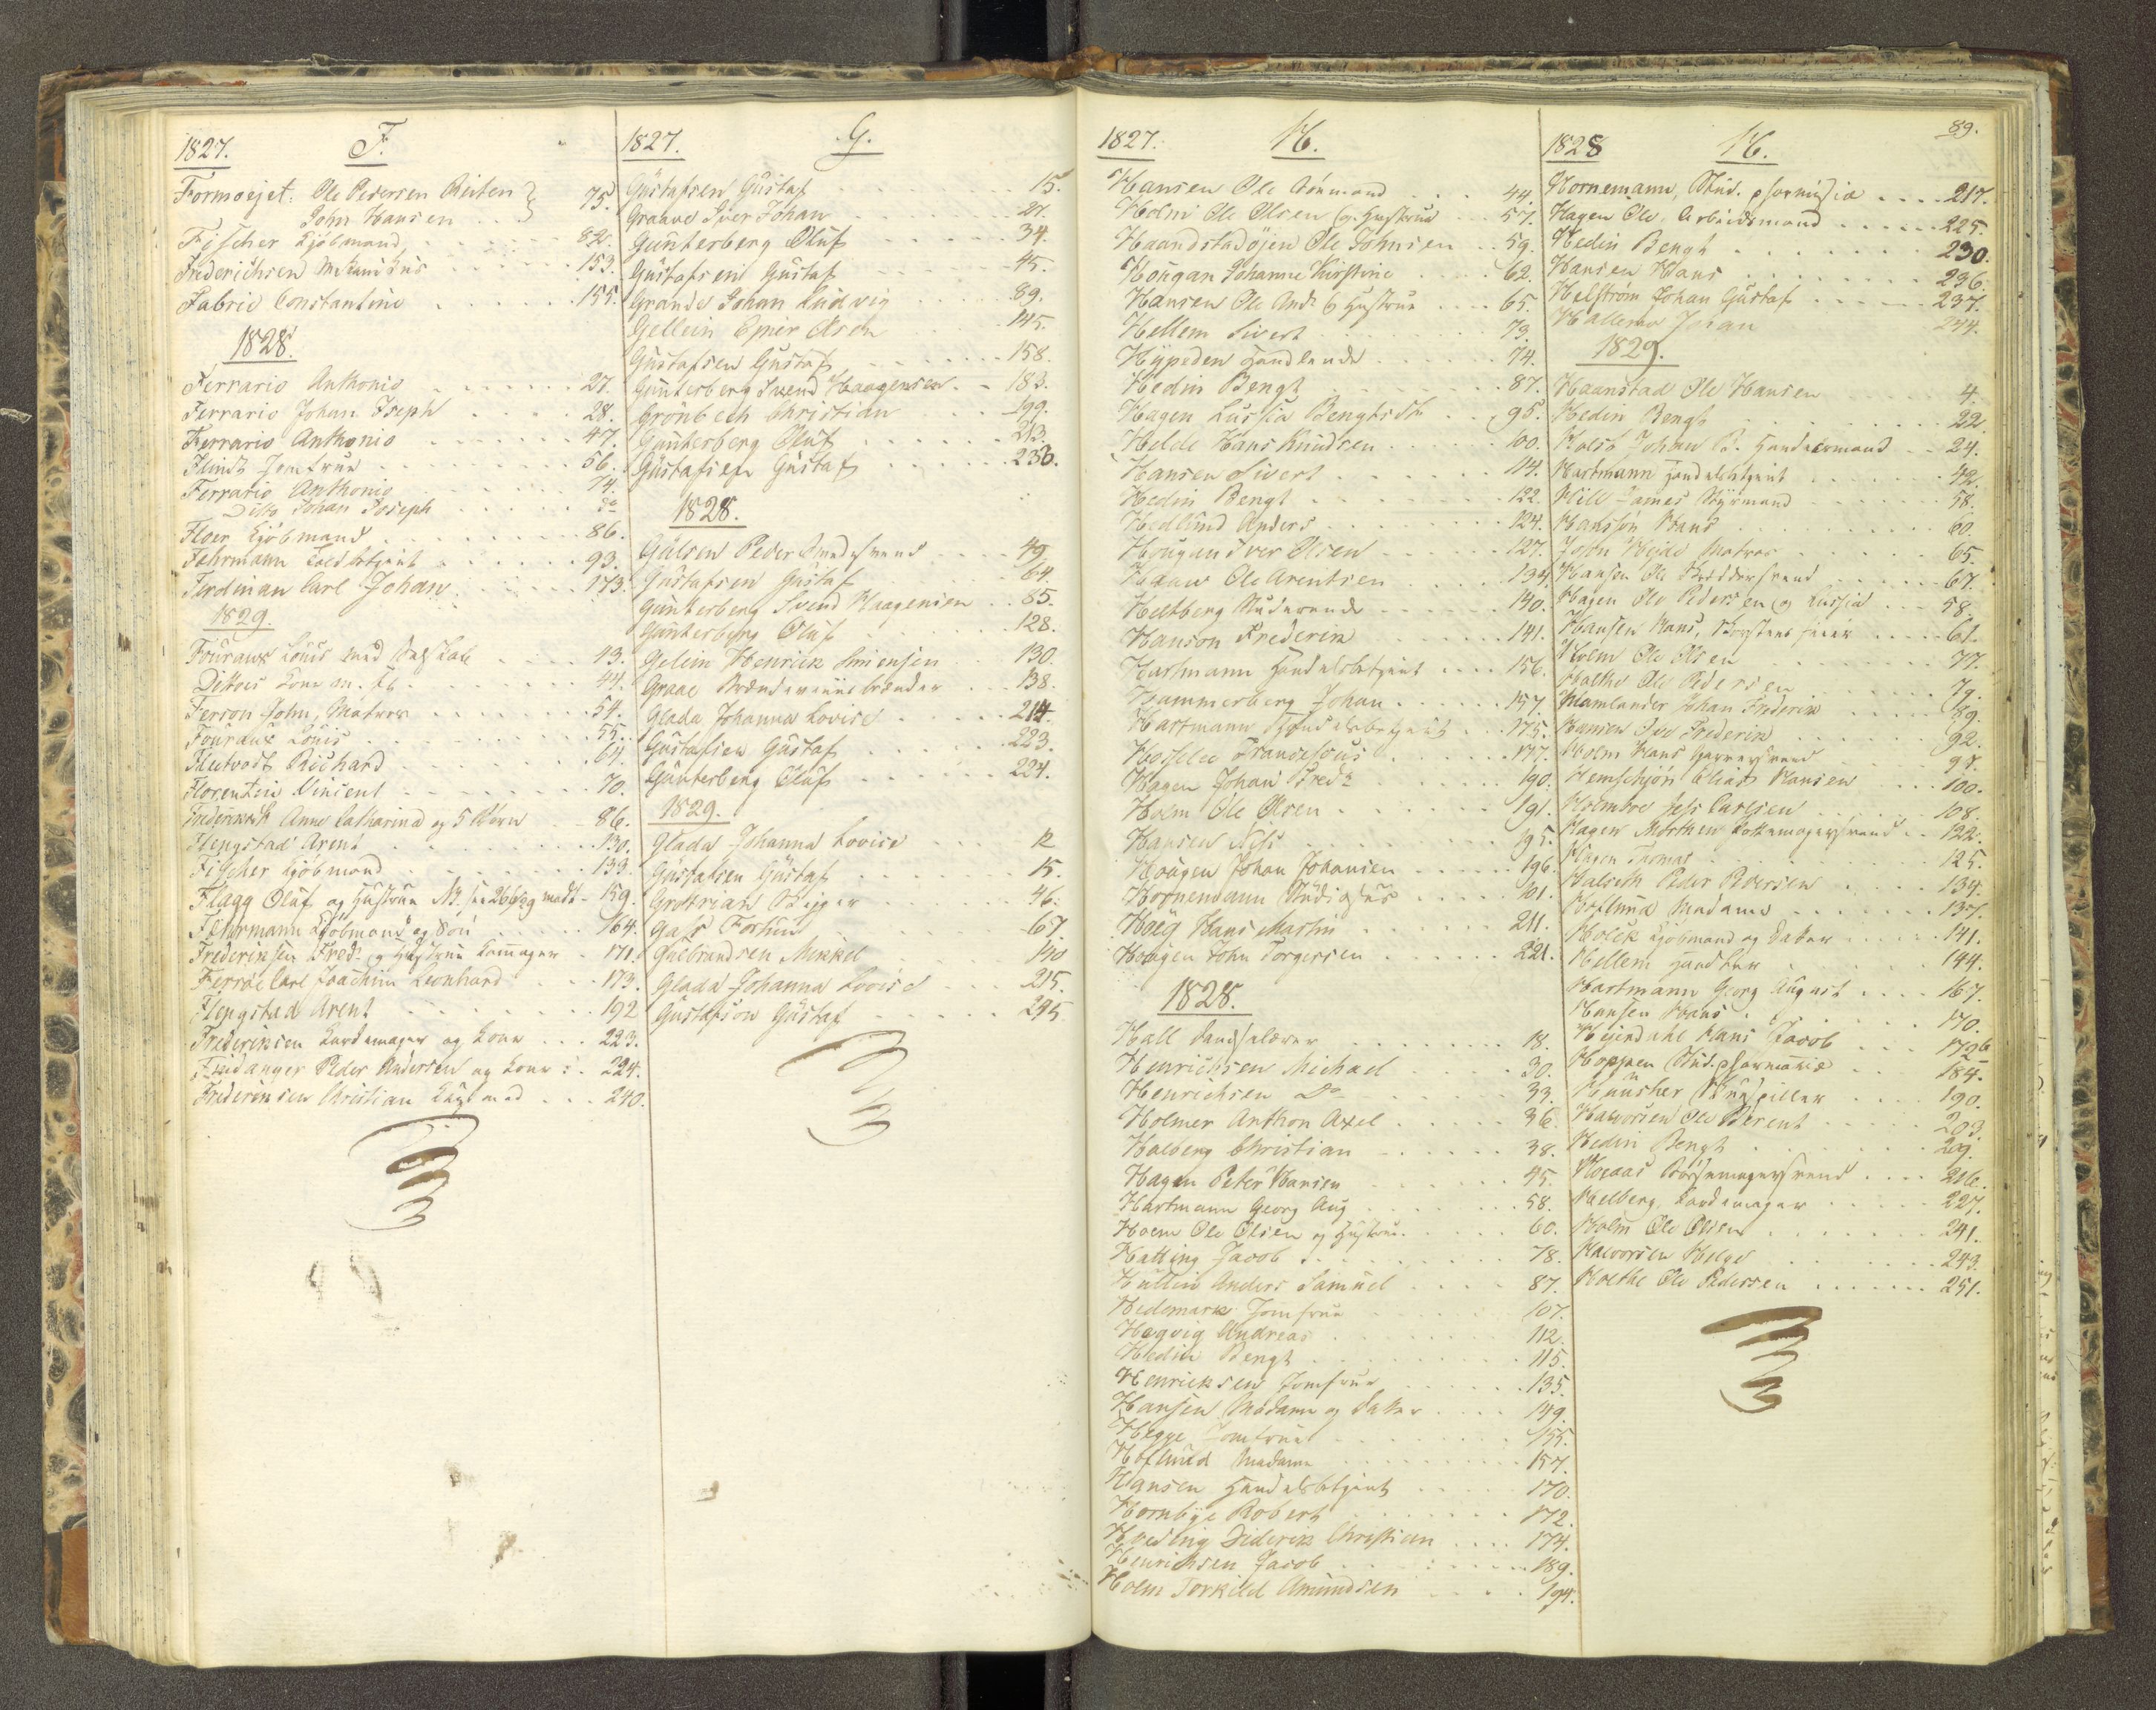 1827. F.
Formoejet: Ole Pedersen Reiten } 75.
John Hansen
Fischer Kjöbmand 82.
Frederichsen Mekanikus 153.
Fabrie Constantino 155.
1828.
Ferrario Anthonio 27.
Ferrario Johan Joseph 28.
Ferrario Anthonio 47.
Flindt Jomfrue 56.
Ferrario Anthonio 74.
Ditto Johan Joseph do
Floer Kjöbmand 86.
Fehrmann Toldbetjent 93.
Ferdinan Carl Johan 173.
1829.
Fouraux Louis med Selskab 43.
Dittoes Kone m. fl. 44.
Ferson John, Matros 54.
Fouraux Louis 55.
Fleetvodt Richard 64.
Florentin Vincent 70.
Anne Catharina og 5 Börn 86.
Flengstad Arent 130.
Fischer Kjöbmand 133.
Flagg Oluf og Hustrue 159.
Fehrmann Kjöbmand og Sön 164.
Frederiksen Fred. og Hustrue 171.
Ferröe Carl Joachim Leonhard 173.
Flengstad Arent 192
Frederiksen Kardemager og Kone 223.
Findanger Peder Andersen og Kone 224.
Frederiksen Christian 240.
1827. G.
Gustafsen Gustaf 15.
Graave Iver Johan 27.
Günterberg Oluf 34.
Gustafsen Gustaf 45.
Grande Johan Ludvig 89.
Gellein Olsen 145.
Gustafsen Gustaf 158.
Günterberg Svend Haagensen 183.
Grönbech Christian 199.
Günterberg Oluf 213.
Gustafsen Gustaf 236.
1828.
Gulsen Peder Smedesvend 49.
Gustafsen Gustaf 64.
Günterberg Svend Haagensen 85.
Günterberg Oluf 128.
Gelein Henrich Simensen 130.
Graae Brændeviinsbrænder 138.
Glada Johanna Lovise 214.
Gustafsen Gustaf 223.
Günterberg Oluf 224.
1829.
Glada Johanna Lovise 12
Gustafsen Gustaf 15.
Grotrian 46.
Gass Fortun 67.
Gulbrandsen Mikkel 140
Glada Johanna Lovise 215.
Gustafson Gustaf 295.
1827. H.
Hansen Ole Styrmand 44.
Holm Ole Olsen og Hustrue 57.
Haandstadöjen Ole Johnsen 59.
Hougan Johanne Kirstine 62.
Hansen Ole And: og Hustrue 65.
Hellem Sivert 73.
Hypeden Handlende 74.
Hedin Bengt 87.
Hagen Lussia Bengtsdt. 95.
Helde Hans Knudsen 100.
Hansen Sivert 114.
Hedin Bengt 122.
Hedlund Anders 124.
Hougan Iver Olsen 127.
Haave Ole Arentsen 134.
Heltberg Studerende 140.
Hanson Frederik 141.
Hartmann Handelsbetjent 156.
Hammerberg Johan 157.
Hartmann Handelsbetjent 175.
Franciscus 177.
Hagen Johan Fredr. 190.
Holm Ole Olsen 191.
Hansen Nils 195.
Haagen Johan Johansen 196.
Hornemann Studiosus 201.
Hoëg Hans Martin 211.
Haagen John Torgersen 221.
1828.
Hall 18.
Henrichsen Michael 30.
Henrichsen Do 33.
Holmer Anthon Axel 36.
Halberg Christian 38.
Hagen Peter Hansen 45.
Hartmann Georg Aug 58.
Holm Ole Olsen og Hustrue 60.
Hatting Jacob 78.
Hultin Anders Samuel 87.
Hedemark Jomfrue 107.
Hegvig Andreas 112.
Hedin Bengt 115.
Henriksen Jomfrue 135.
Hansen Madame og Datter 149.
Hegge Jomfrue 155.
Hoflund Madame 157.
Hansen Handelsbetjent 170.
Hornbye Robert 172.
Diderik Christian 174.
Henrichsen Jacob 189.
Holm Torkild Amundsen 194.
89.
1828 H.
Hornemann, Stud. pharmasia 217.
Hagen Ole, Arbeidsmand 225.
Hedin Bengt 230.
Hansen Hans 236.
Helström Johan Gustaf 237.
Hallemo Johan 244.
1829.
Haanstad Ole Hansen 4.
Hedin Bengt 22.
Holst Johan B. Handelsmand 24.
Hartmann Handelsbetjent 42.
Hill James Styrmand 58.
Hansson Hans 60.
John Heide Matros 65.
Hansen Ole Skræddersvend 67.
Hagen Ole Pedersen og Lussia 58.
Hansen Hans, Skorstensfeier 61.
Holm Ole Olsen 77.
Holthe Ole Pedersen 79.
Hamlander Johan Frederik 89.
Hansen Ive Frederik 92.
Holm Hans Garversvend 97.
Hemschjön Elias Hansen 100.
Holmboe Jess Carlsen 108.
Hagen Morthen Pottemagersvend 122.
Hagen Thomas 125.
Halseth Peder Pedersen 134.
Hoflund Madame 137.
Holck Kjöbmand og Datter 141.
Hellem Handlende 144.
Hartmann Georg August 167.
Hansen Hans 170.
Hejerdahl Hans Jacob 172b
Hoppen Stud. pharmaciæ 184.
Skuespiller 190.
Halvorsen Ole Berent 203.
Hedin Bengt 209.
Bössemagersvend 216.
Helberg Kardemager 227.
Holm Ole Olsen 241.
Halvorsen Helge 243.
Holthe Ole Pedersen 251.